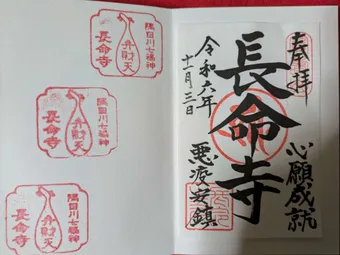 奉拝
心願成就
長命寺
悪疫安鎮
令和六年
十一月三日
隅田川七福神
弁財天
長命寺
隅田川七福神
弁財天
長命寺
隅田川七福神
弁財天
長命寺